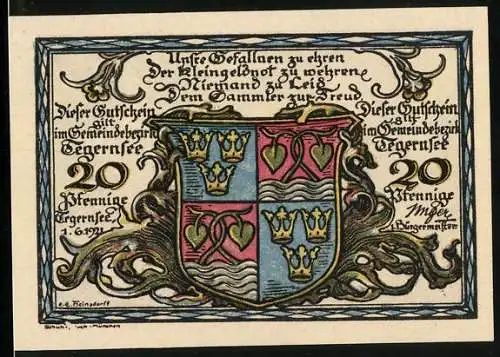 Unsre Gefallnen zu ehren
Der Kleingeldnot zu wehren
Niemand zu Leid
Dem Sammler zur Freud
Dieser Gutschein
gilt
im Gemeindebezirk
Tegernsee
20
Pfennige
Tegernsee
1.6.1921
Dieser Gutschein
gilt
im Gemeindebezirk
Tegernsee
20
Pfennige
1. Bürgermeister
München